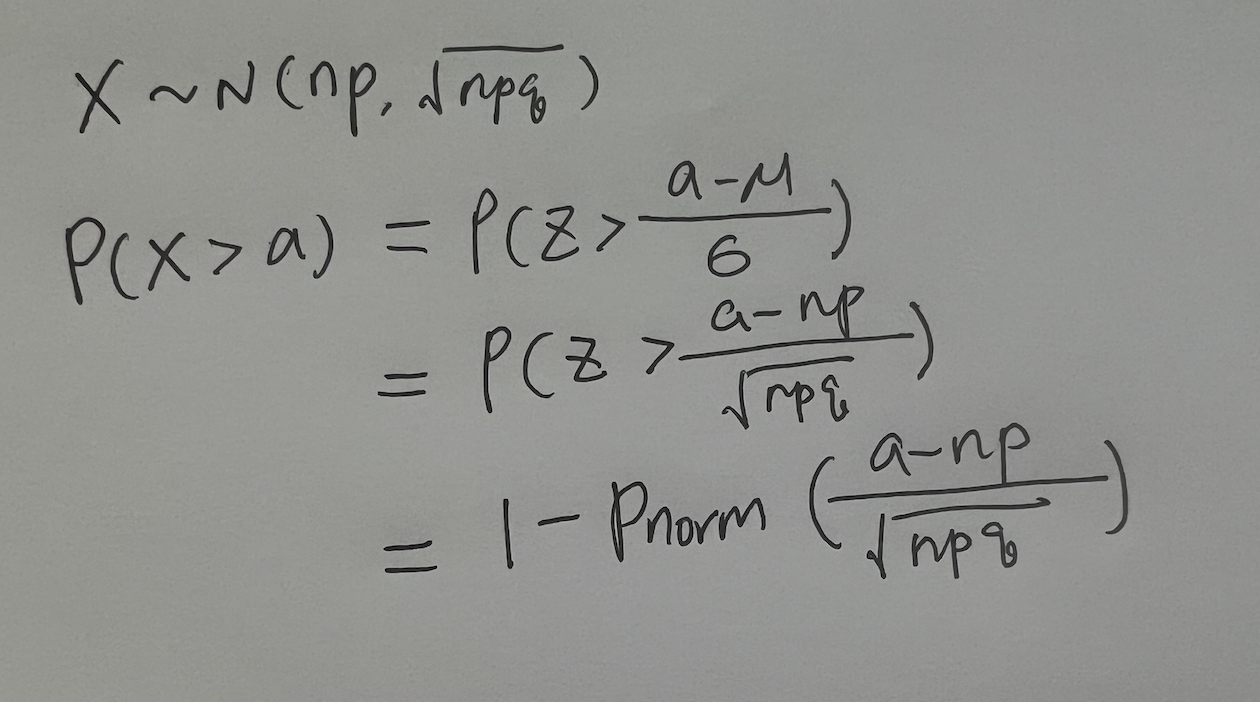 X ~ N(np, √npq)
P(X > a) = P(Z > (a-μ)/σ)
= P(Z > (a-np)/√npq)
= 1 - Pnorm ((a-np)/√npq)